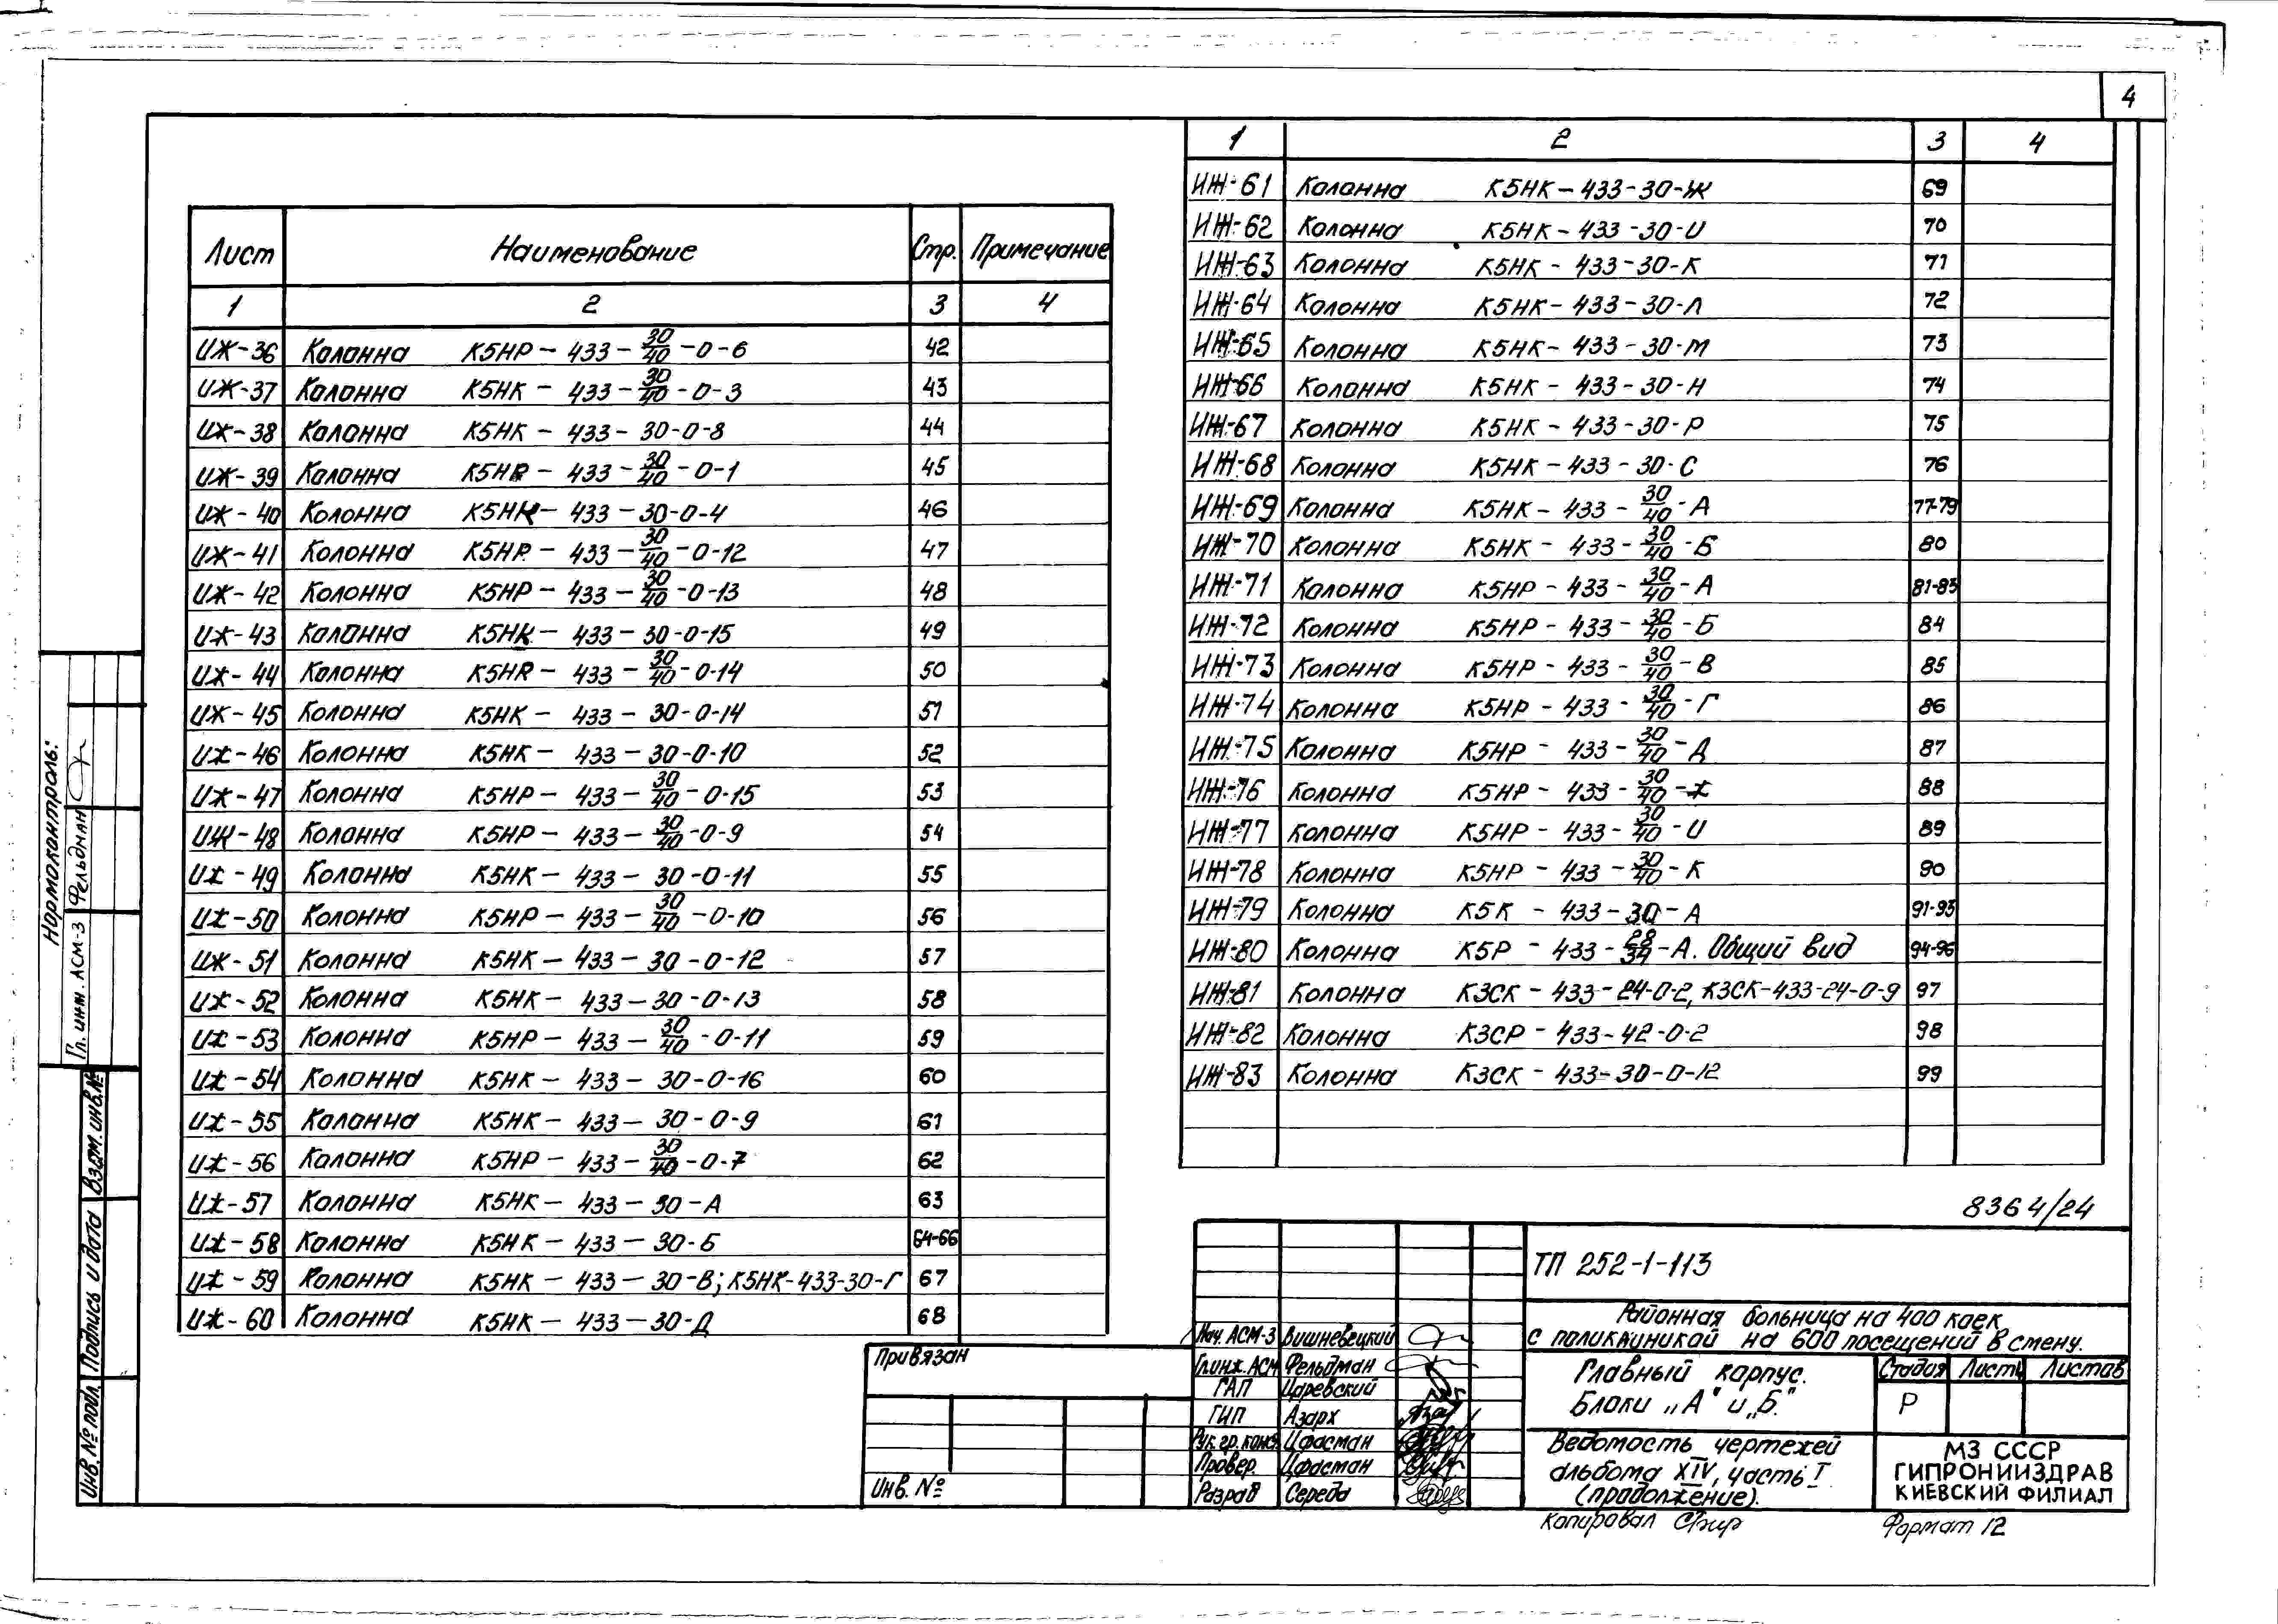 4
Лист Наименование Стр. Примечание
1 2 3 4
ИЖ-36 Колонна К5НР-433-30/40-0-6 42
ИЖ-37 Колонна К5НК-433-30/40-0-3 43
ИЖ-38 Колонна К5НК-433-30-0-8 44
ИЖ-39 Колонна К5НР-433-30/40-0-1 45
ИЖ-40 Колонна К5НК-433-30-0-4 46
ИЖ-41 Колонна К5НР-433-30/40-0-12 47
ИЖ-42 Колонна К5НР-433-30/40-0-13 48
ИЖ-43 Колонна К5НК-433-30-0-15 49
ИЖ-44 Колонна К5НР-433-30/40-0-14 50
ИЖ-45 Колонна К5НК-433-30-0-14 51
ИЖ-46 Колонна К5НК-433-30-0-10 52
ИЖ-47 Колонна К5НР-433-30/40-0-15 53
ИЖ-48 Колонна К5НР-433-30/40-0-9 54
ИЖ-49 Колонна К5НК-433-30-0-11 55
ИЖ-50 Колонна К5НР-433-30/40-0-10 56
ИЖ-51 Колонна К5НК-433-30-0-12 57
ИЖ-52 Колонна К5НК-433-30-0-13 58
ИЖ-53 Колонна К5НР-433-30/40-0-11 59
ИЖ-54 Колонна К5НК-433-30-0-16 60
ИЖ-55 Колонна К5НК-433-30-0-9 61
ИЖ-56 Колонна К5НР-433-30/40-0-7 62
ИЖ-57 Колонна К5НК-433-30-А 63
ИЖ-58 Колонна К5НК-433-30-Б 64-66
ИЖ-59 Колонна К5НК-433-30-В; К5НК-433-30-Г 67
ИЖ-60 Колонна К5НК-433-30-Д 68
1 2 3 4
ИЖ-61 Колонна К5НК-433-30-Ж 69
ИЖ-62 Колонна К5НК-433-30-И 70
ИЖ-63 Колонна К5НК-433-30-К 71
ИЖ-64 Колонна К5НК-433-30-Л 72
ИЖ-65 Колонна К5НК-433-30-М 73
ИЖ-66 Колонна К5НК-433-30-Н 74
ИЖ-67 Колонна К5НК-433-30-Р 75
ИЖ-68 Колонна К5НК-433-30-С 76
ИЖ-69 Колонна К5НК-433-30/40-А 77-79
ИЖ-70 Колонна К5НК-433-30/40-Б 80
ИЖ-71 Колонна К5НР-433-30/40-А 81-83
ИЖ-72 Колонна К5НР-433-30/40-Б 84
ИЖ-73 Колонна К5НР-433-30/40-В 85
ИЖ-74 Колонна К5НР-433-30/40-Г 86
ИЖ-75 Колонна К5НР-433-30/40-Д 87
ИЖ-76 Колонна К5НР-433-30/40-Ж 88
ИЖ-77 Колонна К5НР-433-30/40-И 89
ИЖ-78 Колонна К5НР-433-30/40-К 90
ИЖ-79 Колонна К5К-433-30-А 91-93
ИЖ-80 Колонна К5Р-433- -А. Общий вид 94-96
ИЖ-81 Колонна К3СК-433-24-0-2, К3СК-433-24-0-9 97
ИЖ-82 Колонна К3СР-433-42-0-2 98
ИЖ-83 Колонна К3СК-433-30-0-12 99
8364/24
ТП 252-1-113
Районная больница на 400 коек
с поликлиникой на 600 посещений в смену.
Главный корпус.
Блоки „А" и „Б."
Стадия Лист Листов
Р
Ведомость чертежей
альбома XIV, часть I
(продолжение).
МЗ СССР
ГИПРОНИИЗДРАВ
КИЕВСКИЙ ФИЛИАЛ
Нач. АСМ-3 Вишневецкий
Гл.инж. АСМ Фельдман
ГАП Царевский
ГИП Азарх
Рук.гр.конст. Цфасман
Провер. Цфасман
Разраб Середа
Привязан
Инв. №
Копировал
Формат 12
Нормоконтроль:
Гл. инж. АСМ-3 Фельдман
Взам. инв. №
Подпись и дата
Инв. № подл.